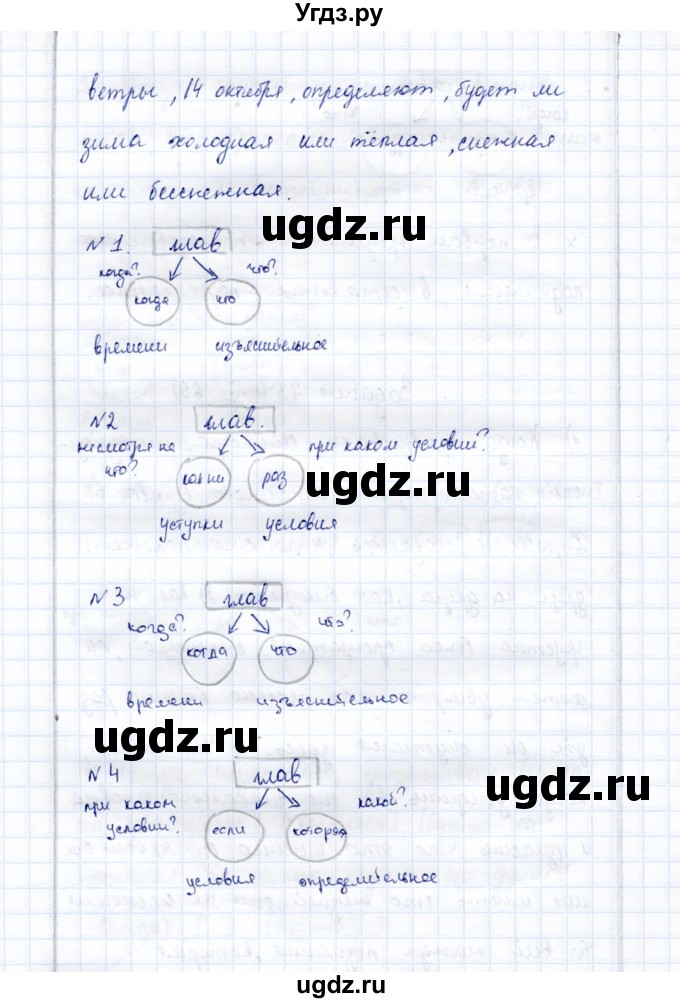 Угдз.ру
ветры, 14 октября, определяют, будет ли
зима холодная или тёплая, снежная
или бесснежная.
ugdz.ru
№1. глав
когда? что?
когда что
времени изъяснительное
№2 глав.
несмотря на что? при каком условии?
как ни раз
ugdz.ru
уступки условия
№3 глав
когда? что?
когда что
времени изъяснительное
ugdz.ru
№4 глав
при каком условии? какой?
если которая
условия определительное
ugdz.ru